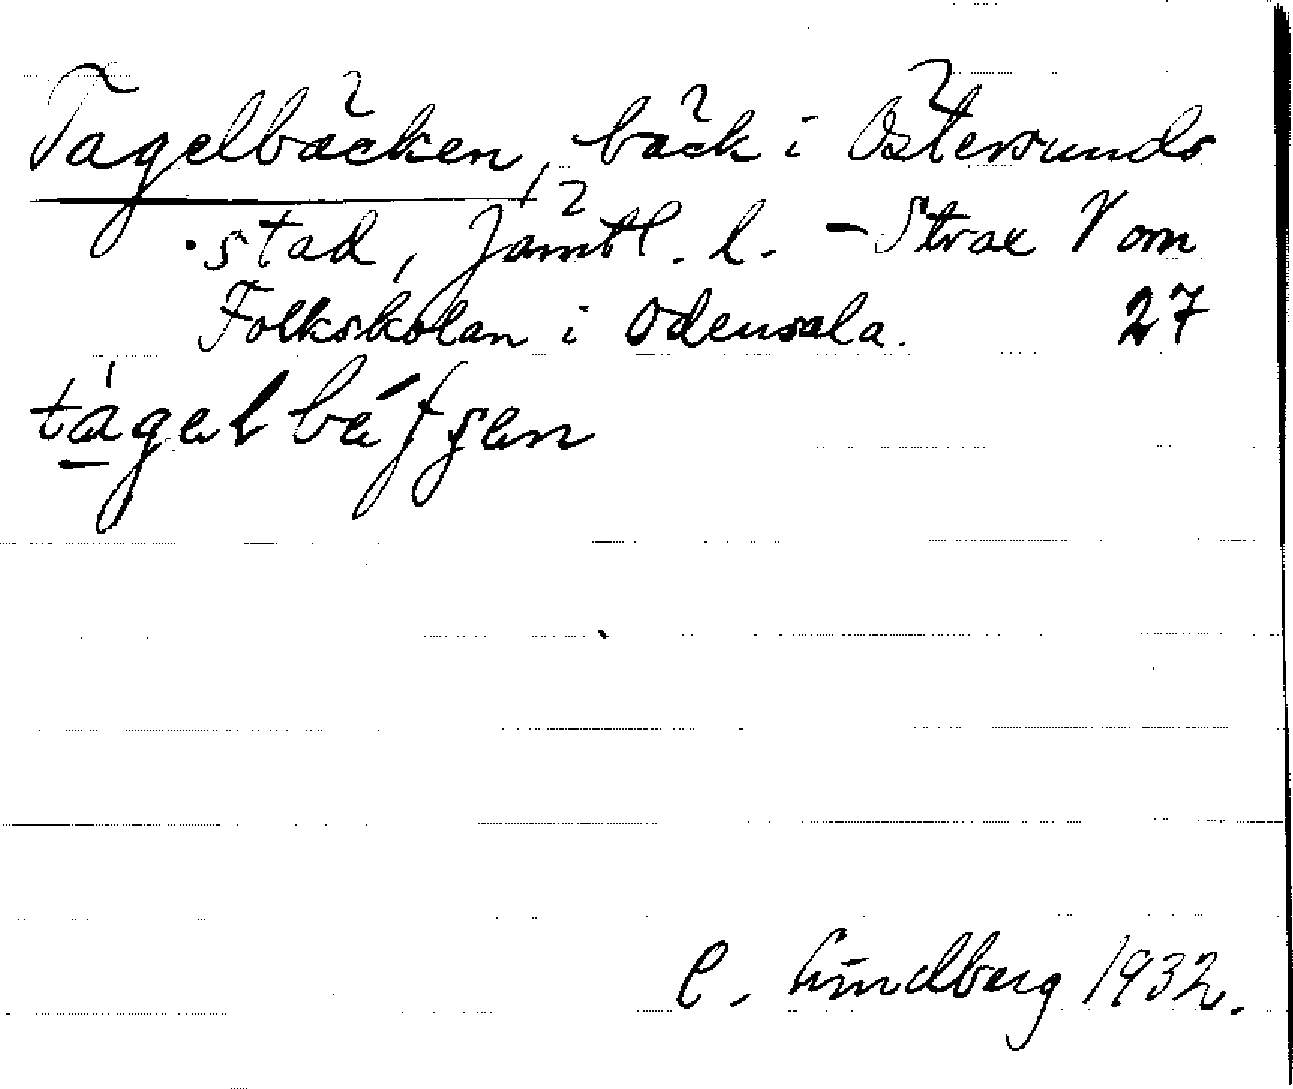 Tagelbäcken, bäck i Östersunds
stad, Jämtl. l. – Strax V om
Folkskolan i Odensala. 27
C. Lindberg 1932.